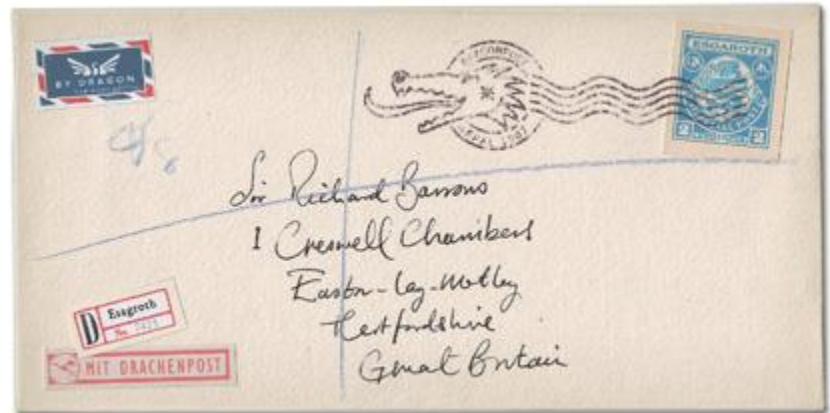 BY DRAGON
ESGAROTH
2
2
Sir Richard Barrons
1 Creswell Chambers
Easton-lay-Motley
Hertfordshire
Great Britain
D
Esagroth
No.
MIT DRACHENPOST